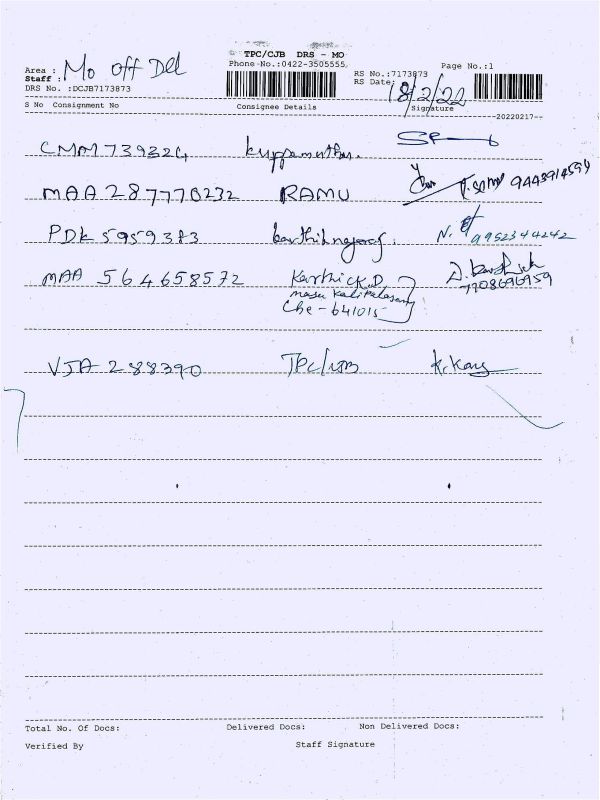 TPC/CJB DRS - MO
Phone No.:0422-3505555
Area : Mo Off Del
Staff :
DRS No. :DCJB7173873
RS No.:7173873
Page No.:1
RS Date: 18/2/22
S No Consignment No Consignee Details Signature
--20220217--
CMM 739324 kuppamuthu.
MAA 287770232 RAMU 9443914594
PDK 5959383 karthiknagaraj. N. 9952344242
MAA 564658572 Karthick.D D. Karthick
7708696959
Che - 641015
VJA 288390 TPC/CJB
Total No. Of Docs: Delivered Docs: Non Delivered Docs:
Verified By Staff Signature